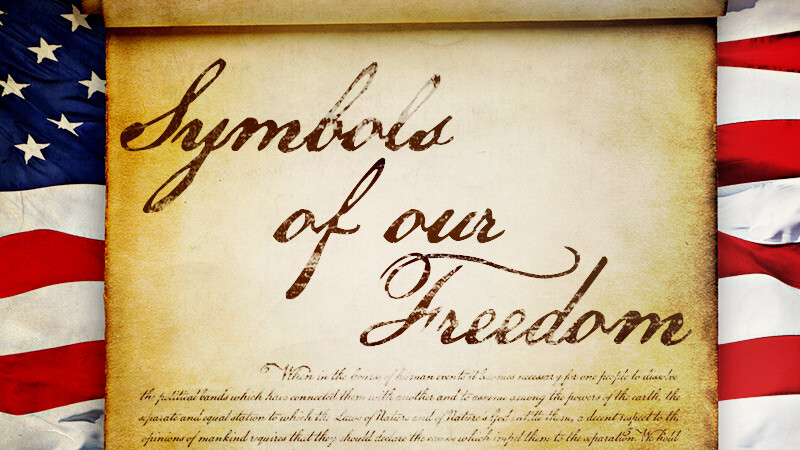 Symbols
of our
Freedom
When in the Course of human events it becomes necessary for one people to dissolve
the political bands which have connected them with another and to assume among the powers of the earth, the
separate and equal station to which the Laws of Nature and of Nature's God entitle them, a decent respect to the
opinions of mankind requires that they should declare the causes which impel them to the separation. We hold